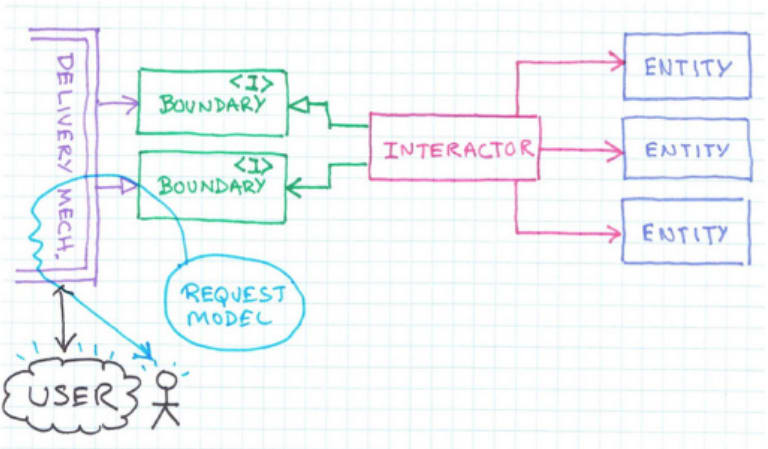 DELIVERY MECH.
<I>
BOUNDARY
<I>
BOUNDARY
INTERACTOR
ENTITY
ENTITY
ENTITY
REQUEST
MODEL
USER